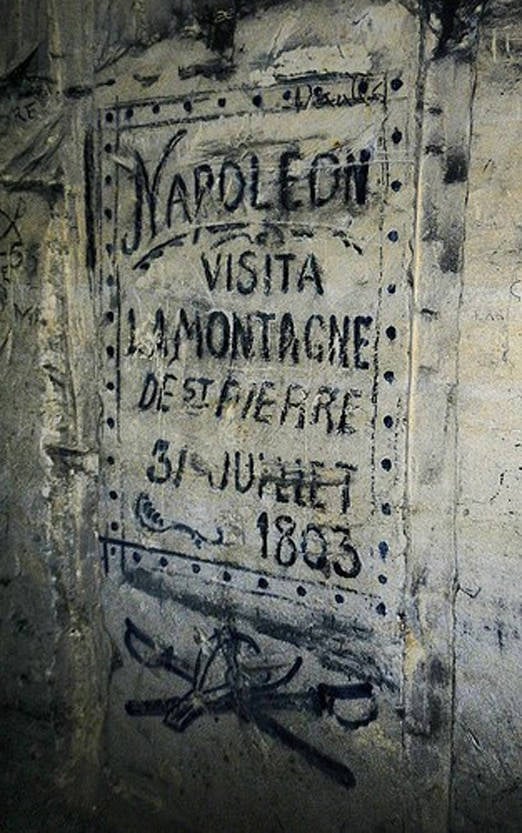 NAPOLEON
VISITA
LA MONTAGNE
DE ST PIERRE
31 JUILLET
1803